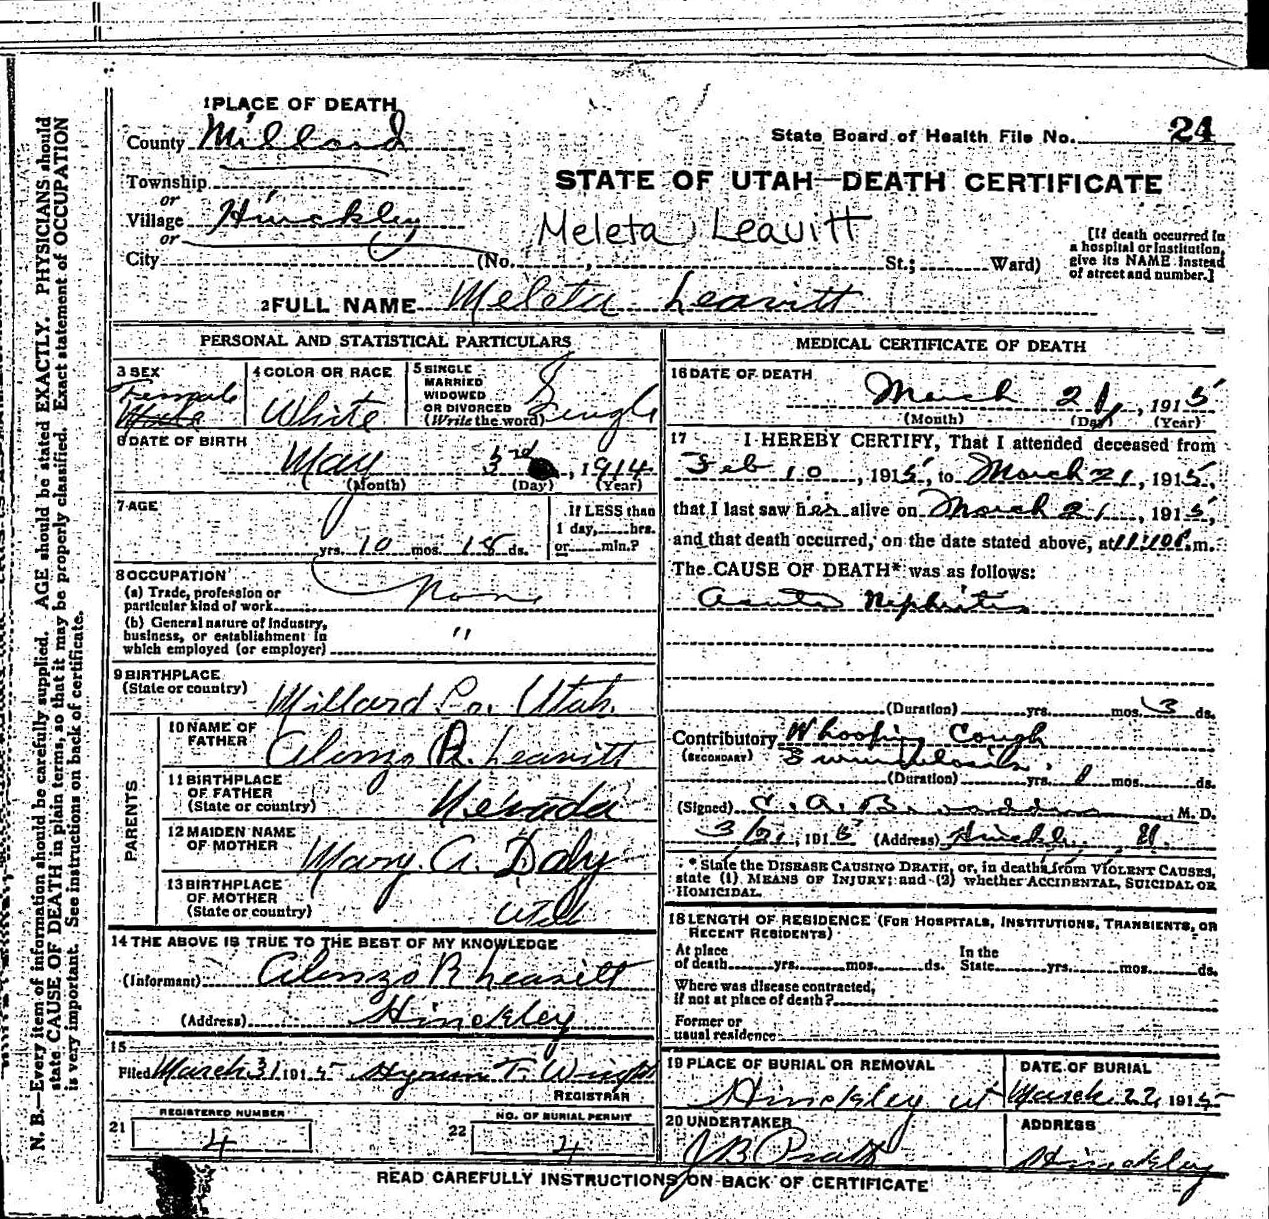 1 PLACE OF DEATH
County Millard
State Board of Health File No. 24
Township
or
STATE OF UTAH—DEATH CERTIFICATE
Village Hinckley
or
Meleta Leavitt
City (No. , St.; Ward)
[If death occurred in
a hospital or institution,
give its NAME instead
of street and number.]
2 FULL NAME Meleta Leavitt
PERSONAL AND STATISTICAL PARTICULARS
3 SEX
Female
4 COLOR OR RACE
White
5 SINGLE
MARRIED
WIDOWED
OR DIVORCED
(Write the word) Single
6 DATE OF BIRTH
May 3rd, 1914
(Month) (Day) (Year)
7 AGE
yrs. 10 mos. 18 ds.
If LESS than
1 day, hrs.
or min.?
8 OCCUPATION
(a) Trade, profession or
particular kind of work None
(b) General nature of Industry,
business, or establishment in
which employed (or employer) "
9 BIRTHPLACE
(State or country) Millard Co. Utah
PARENTS
10 NAME OF
FATHER Alonzo R. Leavitt
11 BIRTHPLACE
OF FATHER
(State or country) Nevada
12 MAIDEN NAME
OF MOTHER Mary A. Daly
13 BIRTHPLACE
OF MOTHER
(State or country) Utah
14 THE ABOVE IS TRUE TO THE BEST OF MY KNOWLEDGE
(Informant) Alonzo R Leavitt
(Address) Hinckley
15
Filed March 31 1915 Hyrum T. Wright
REGISTRAR
REGISTERED NUMBER
21 4
NO. OF BURIAL PERMIT
22 4
MEDICAL CERTIFICATE OF DEATH
16 DATE OF DEATH
March 21, 1915
(Month) (Day) (Year)
17 I HEREBY CERTIFY, That I attended deceased from
Feb 10, 1915, to March 21, 1915,
that I last saw her alive on March 21, 1915,
and that death occurred, on the date stated above, at m.
The CAUSE OF DEATH* was as follows:
Acute Nephritis
(Duration) yrs. mos. 3 ds.
Contributory Whooping Cough
(SECONDARY)
(Duration) yrs. 1 mos. ds.
(Signed) C. A. Broaddus, M. D.
3/21, 1915 (Address) Hinckley, U.
* State the DISEASE CAUSING DEATH, or, in deaths from VIOLENT CAUSES,
state (1) MEANS OF INJURY; and (2) whether ACCIDENTAL, SUICIDAL OR
HOMICIDAL.
18 LENGTH OF RESIDENCE (FOR HOSPITALS, INSTITUTIONS, TRANSIENTS, OR
RECENT RESIDENTS)
At place
of death yrs. mos. ds.
In the
State yrs. mos. ds.
Where was disease contracted,
if not at place of death?
Former or
usual residence
19 PLACE OF BURIAL OR REMOVAL
Hinckley Ut
DATE OF BURIAL
March 22, 1915
20 UNDERTAKER
J B Pratt
ADDRESS
Hinckley
READ CAREFULLY INSTRUCTIONS ON BACK OF CERTIFICATE
N. B.—Every item of information should be carefully supplied. AGE should be stated EXACTLY. PHYSICIANS should
state CAUSE OF DEATH in plain terms, so that it may be properly classified. Exact statement of OCCUPATION
is very important. See instructions on back of certificate.